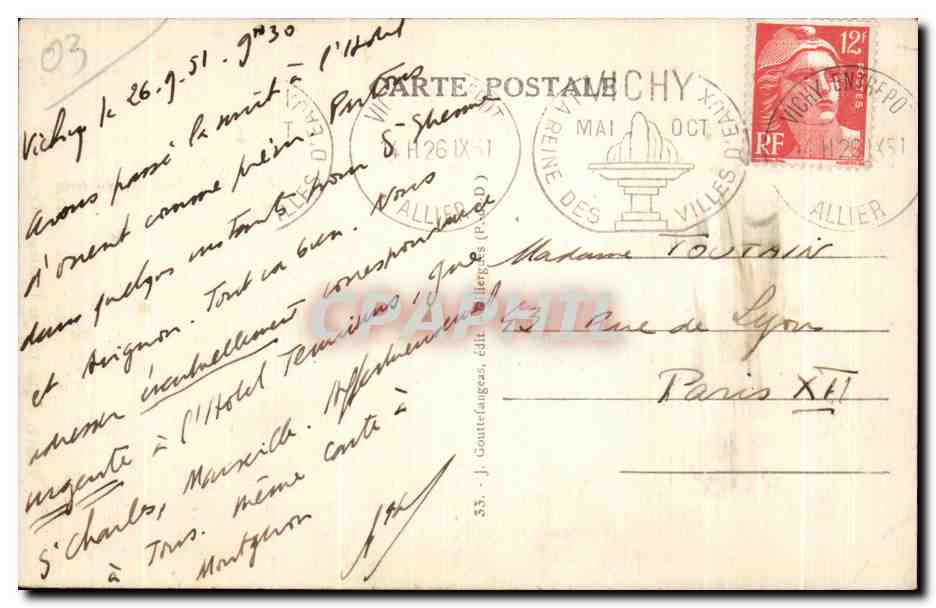 03
Vichy le 26.9.51. 9h30
Avons passé la nuit à l'Hotel
d'orient comme prévu. Partons
dans quelques instants pour St Etienne
et Avignon. Tout va bien. Nous
adresser éventuellement correspondance
urgente à l'Hotel Terminus, Gare
St Charles, Marseille. Affectueusement
à Tous. Même carte à
Montgeron
CARTE POSTALE
VICHY
ALLIER
H.26 IX 51
VICHY
MAI OCT
LA REINE DES VILLES D'EAUX
12F
POSTES
RF
VICHY ENTREPOT
H 26 IX 51
ALLIER
Madame TOUTAIN
43 rue de Lyon
Paris XII
33. - J. Gouttefangeas, édit.
CPAPHIL